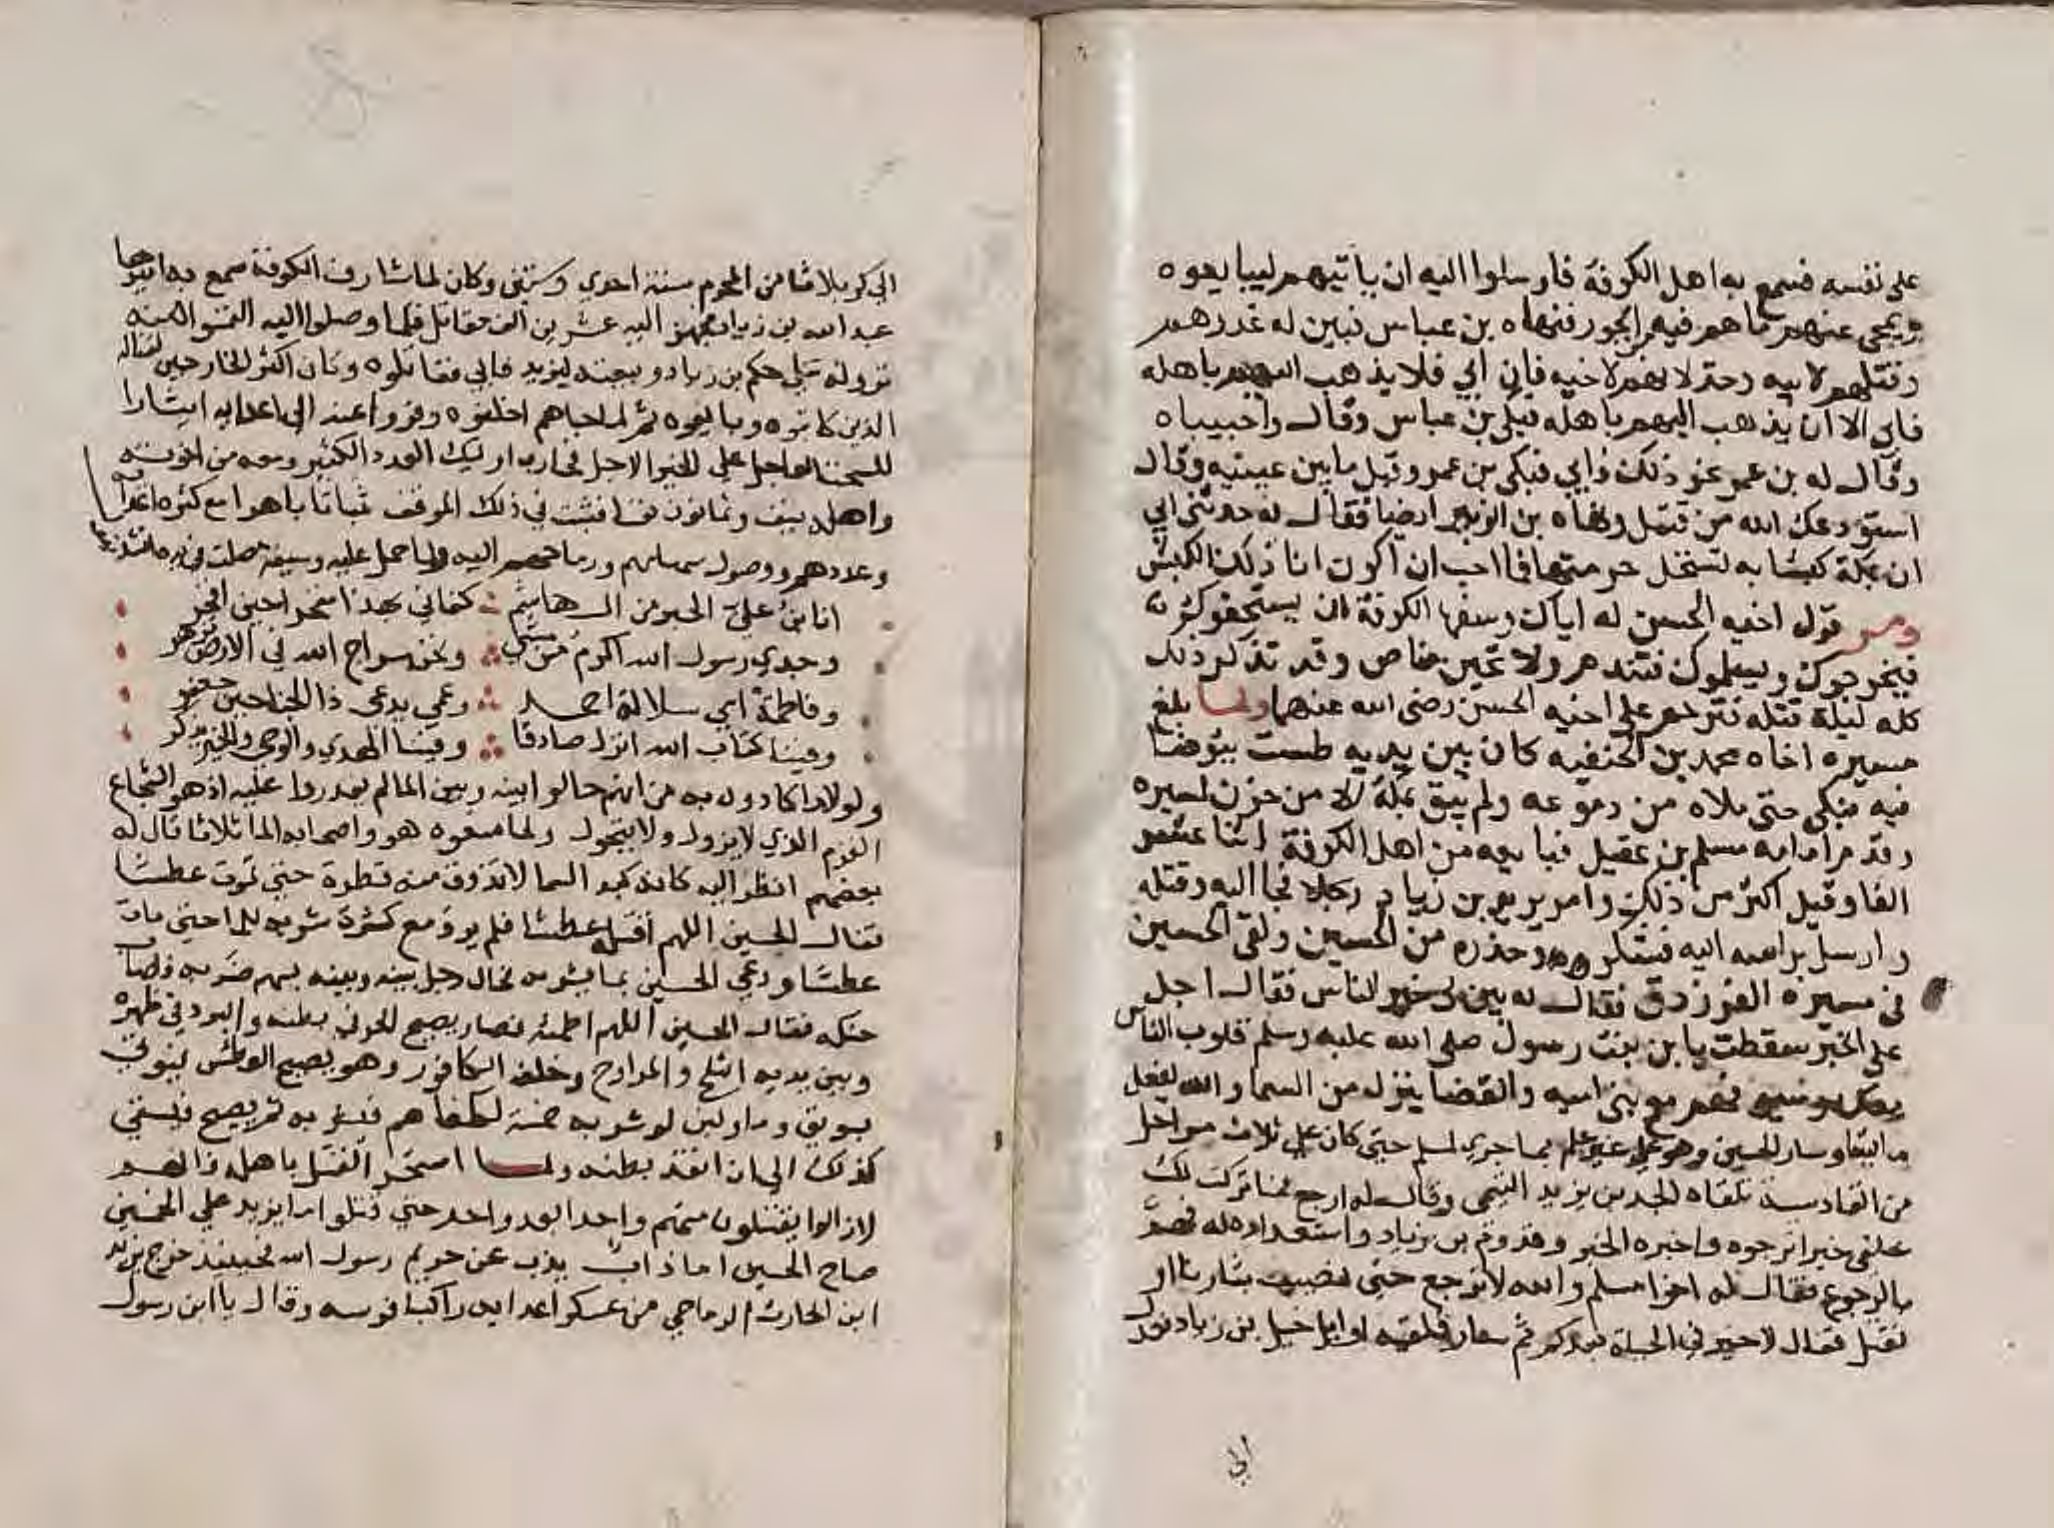 على نفسه فسمع به اهل الكوفة فارسلوا اليه ان ياتيهم ليبايعوه
ويمحى عنهم ما هم فيه من الجور فنهاه بن عباس فبين له غدرهم
وقتلهم لابيه وخذلانهم لاخيه فان ابي فلا يذهب اليهم باهله
فابى الا ان يذهب اليهم باهله فبكى بن عباس وقال واحبيباه
وقال له بن عمر نحو ذلك فابي فبكى بن عمر وقبل ما بين عينيه وقال
استودعك الله من قتيل ونهاه بن الزبير ايضا فقال له حدثني ابي
ان بمكة كبشا به تستحل حرمتها فما احب ان اكون انا ذلك الكبش
ومر قول اخيه الحسن له اياك وسفها الكوفة ان يستخفوك
فيخرجوك ويسلموك فتندم ولا تحين مناص وقد تذكر ذلك
كله ليلة قتله فترحم على اخيه الحسن رضي الله عنهما ولما بلغ
مسيره اخاه محمد بن الحنفيه كان بين يديه طست يتوضا
فيه فبكى حتى ملاه من دموعه ولم يبق بمكة الا من حزن لمسيره
وقدم امامه مسلم بن عقيل فبايعه من اهل الكوفة اثنا عشر
الفا وقيل اكثر من ذلك وامر يزيد بن زياد فجا اليه وقتله
وارسل براسه اليه فشكره وحذره من الحسين ولقى الحسين
في مسيره الفرزدق فقال له بين لي خبر الناس فقال اجل
على الخبير سقطت يا بن بنت رسول صلى الله عليه وسلم قلوب الناس
معك وسيوفهم مع بني اميه والقضا ينزل من السما والله يفعل
ما يشا وسار الحسين وهو غير عالم بما جرى لمسلم حتى كان على ثلاث مراحل
من القادسية تلقاه الحر بن يزيد التيمي وقال له ارجع فما تركت لك
خلفي خيرا ترجوه واخبره الخبر وقدوم بن زياد واستعداده له فهم
بالرجوع فقال له اخوا مسلم والله لا نرجع حتى نصيب بثارنا او
نقتل فقال لا خير في الحياة بعدكم ثم سار فلقيه اوايل خيل بن زياد فعدل
الي
الى كربلا ثامن المحرم سنة احدي وستين وكان لما شارف الكوفة سمع به اميرها
عبد الله بن زياد فجهز اليه عشرين الف مقاتل فلما وصلوا اليه التمسوا منه
نزوله على حكم بن زياد وبيعته ليزيد فابي فقاتلوه وكان اكثر الخارجين لقتاله
الذين كاتبوه وبايعوه ثم لما جاهم اخلفوه وفروا عنه الى اعدايه ايثارا
للسحت العاجل على الخير الاجل فحارب اوليك العدد الكثير ومعه من اخوته
واهله نيف وثمانون نفسا فثبت في ذلك الموقف ثباتا باهرا مع كثرة اعدايه
وعددهم ووصول سهامهم ورماحهم اليه ولما حمل عليه وسيفه مصلت في يده انشد
انا بن علي الحبر من ال هاشم كفاني بهذا مفخرا حين افخر
وجدي رسول الله اكرم من مشي ونحن سراج الله في الارض نزهر
وفاطمة امي سلالة احمد وعمي يدعى ذا الجناحين جعفر
وفينا كتاب الله انزل صادقا وفينا الهدي والوحي والخير يذكر
ولولا ما كادوه به من انهم حالوا بينه وبين الما لم يقدروا عليه اذ هو الشجاع
القرم الذي لا يزول ولا يتحول ولما منعوه هو واصحابه الما ثلاثا قال له
بعضهم انظر اليه كانه كبد السما لا تذوق منه قطرة حتى تموت عطشا
فقال الحسين اللهم اقتله عطشا فلم يرو مع كثرة شربه للما حتى مات
عطشا ودعى الحسين بما يشربه فحال رجل بينه وبينه بسهم ضربه فاصاب
حنكه فقال الحسين اللهم اظمئه فصار يصيح الحر في بطنه والبرد في ظهره
وبين يديه الثلج والمراوح وخلفه الكافور وهو يصيح العطش فيوتى
بسويق وما ولبن لو شربه خمسة لكفاهم فيشربه ثم يصيح فيسقي
كذلك الى ان انقد بطنه ولما استحر القتل باهله فانهم
لا زالوا يقتلون منهم واحدا بعد واحد حتى قتلوا ما يزيد على الخمسين
صاح الحسين اما ذاب يذب عن حريم رسول الله فحينيذ خرج يزيد
ابن الحارث الرياحي من عسكر اعدايه راكبا فرسه وقال يا ابن رسول